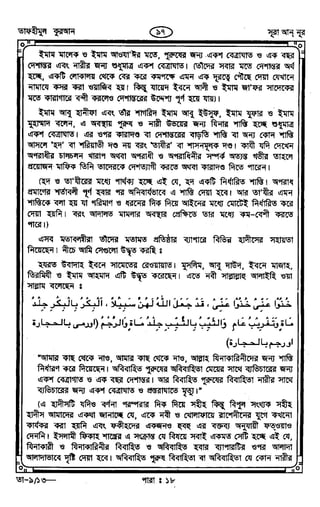 তাফহীমুল কুরআন
৯৭
সূরা আন নূর
ইমাম মালেক ও ইমাম আওযা'ঈর মতে, পুরুষের জন্য একশ বেত্রাঘাত ও এক বছর
দেশান্তর এবং নারীর জন্য শুধুমাত্র একশ বেত্রাঘাত। (তাঁদের সবার মতে দেশান্তর অর্থ
হচ্ছে, একটি লোকালয় থেকে বের করে কমপক্ষে এমন এক দূরত্বে পৌঁছে দেয়া যেখানে
নামাযে কসর করা ওয়াজিব হয়। কিন্তু যায়েদ ইবনে আলী ও ইমাম জা'ফর সাদেকের
মতে কারাগারে বন্দী করলেও দেশান্তরের উদ্দেশ্য পূর্ণ হয়ে যায়)।
ইমাম আবু হানীফা এবং তাঁর শাগরিদ ইমাম আবু ইউসুফ, ইমাম যুফার ও ইমাম
মুহাম্মাদ বলেন, এ অবস্থায় পুরুষ ও নারী উভয়ের জন্য যিনার শাস্তি হচ্ছে শুধুমাত্র
একশ বেত্রাঘাত। এর ওপর কারাদণ্ড বা দেশান্তরের বাড়তি শাস্তি বা অন্য কোন শাস্তি
আসলে 'হদ' বা শরিয়াতী দণ্ড নয় বরং 'তা'যীর' বা শাসনমূলক দণ্ড। কাযী যদি দেখেন
অপরাধীর চালচলন খারাপ অথবা অপরাধী ও অপরাধিনীর সম্পর্ক অত্যন্ত গভীর তাহলে
প্রয়োজন মাফিক তিনি তাদেরকে দেশত্যাগী করতে অথবা কারাদণ্ড দিতে পারেন।
(হদ ও তা'যীরের মধ্যে পার্থক্য হচ্ছে এই যে, হদ একটি নির্ধারিত শাস্তি। অপরাধ
প্রমাণের শর্তাবলী পূর্ণ হবার পর অনিবার্যভাবে এ শাস্তি দেয়া হবে। আর তা'যীর এমন
শাস্তিকে বলা হয় যা পরিমাণ ও ধরনের দিক দিয়ে আইনের মধ্যে মোটেই নির্ধারিত করে
দেয়া হয়নি। বরং আদালত মামলার অবস্থার প্রেক্ষিতে তার মধ্যে কম-বেশী করতে
পারে।)
এসব মতাবলম্বীরা তাঁদের মতামত প্রতিষ্ঠার ব্যাপারে বিভিন্ন হাদীসের সহায়তা
নিয়েছেন। নীচে আমি সেগুলো উদ্ধৃত করছি :
হযরত উবাদাহ ইবনে সামেতের রেওয়ায়াত। মুসলিম, আবু দাউদ, ইবনে মাজাহ,
তিরমিযী ও ইমাম আহমাদ এটি উদ্ধৃত করেছেন। এতে নবী সাল্লাল্লাহু আলাইহি ওয়া
সাল্লাম বলেছেন :
خُذُوْا عَنِّىْ خُذُوْا عَنِّىْ ، قَدْ جَعَلَ اللّٰهُ لَهُنَّ سَبِيْلًا ، اَلْبِكْرُ بِالْبِكْرِ جِلْدُ
مِائَةٍ وَتَغْرِيْبُ عَامٍ وَالثَّيِّبُ بِالثَّيِّبِ جِلْدُ مِائَةٍ وَالرَّجْمِ (اورمى بالحجارة
اورجم بالحجارة)
"আমার কাছ থেকে নাও, আমার কাছ থেকে নাও, আল্লাহ যিনাকারিনীদের জন্য শাস্তি
নির্ধারণ করে দিয়েছেন। অবিবাহিত পুরুষের অবিবাহিতা মেয়ের সাথে ব্যভিচারের জন্য
একশ বেত্রাঘাত ও এক বছর দেশান্তর। আর বিবাহিত পুরুষের বিবাহিতা নারীর সাথে
ব্যভিচারের জন্য একশ বেত্রাঘাত ও প্রস্তরাঘাতে মৃত্যু।"
(এ হাদীসটি যদিও বর্ণনা পরম্পরার দিক দিয়ে সহীহ কিন্তু বিপুল সংখ্যক সহীহ
হাদীস আমাদের একথা জানাচ্ছে যে, একে নবী ও খোলাফায়ে রাশেদীনের যুগে কখনো
কার্যকর করা হয়নি এবং ফকীহদের একজনও হুবহু এর বক্তব্য অনুযায়ী ফতওয়াও
দেননি। ইসলামী ফিকাহ শাস্ত্রে এ সংক্রান্ত যে বিষয়ে সবাই একমত সেটি হচ্ছে এই যে,
যিনাকারী ও যিনাকারিনীর বিবাহিত ও অবিবাহিত হবার ব্যাপারটির ওপর আলাদা
আলাদাভাবে দৃষ্টি দেয়া হবে। অবিবাহিত পুরুষ বিবাহিতা বা অবিবাহিতা যে কোন নারীর
তা-৯/১৩—
পারা : ১৮